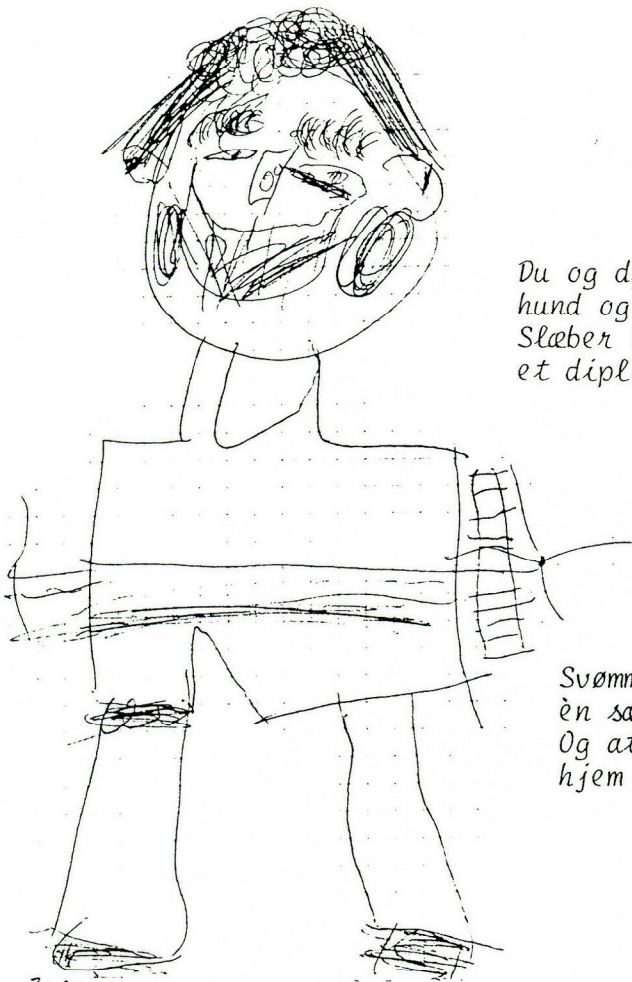 Du og d
hund og
Slæber
et dipl
Svømm
èn sæ
Og at
hjem